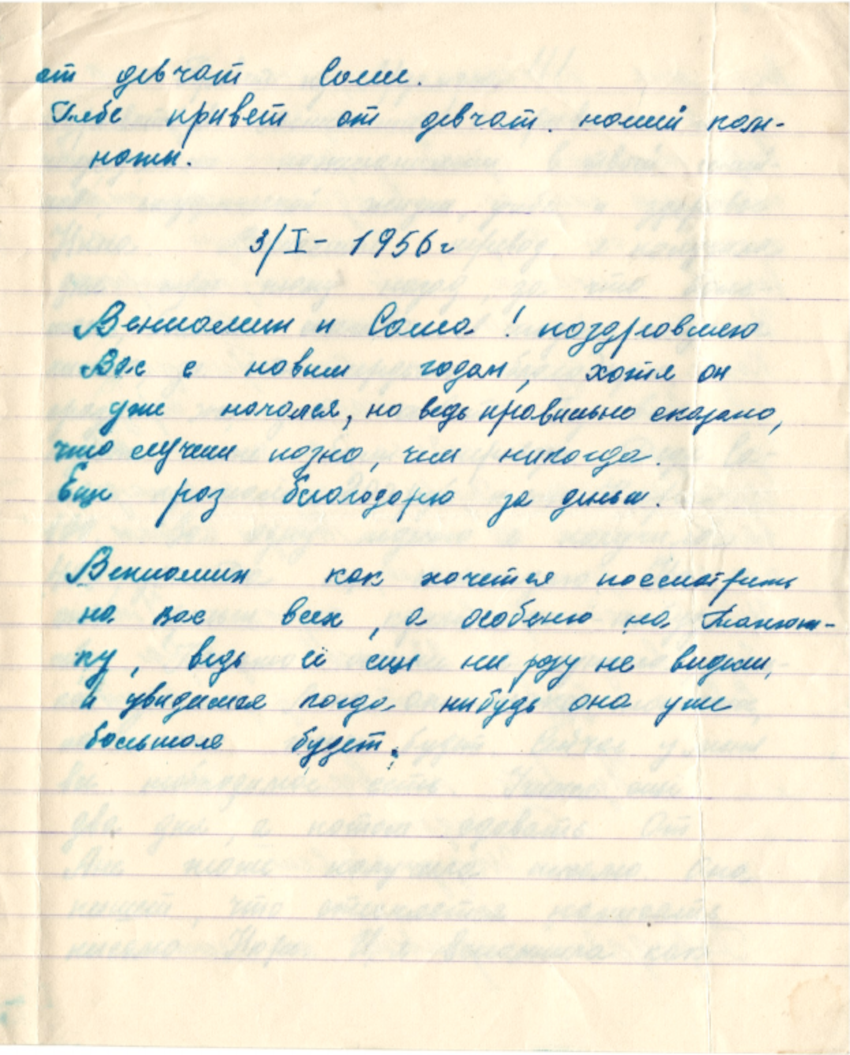 от девчат Соши.
Тебе привет от девчат. нашей ком-
наты.
3/I - 1956 г
Вениамин и Сома! поздровляю
Вас с новым годам, хотя он
уже начался, но ведь правильно сказано,
что случши позно, чем никогда.
Еще раз благодарю за деньги.
Вениамин как хочется поссмотрить
на вас всех, а особено на Танюш-
ку, ведь её еще ни разу не видели,
и увидимся когда нибудь она уже
большая будет.